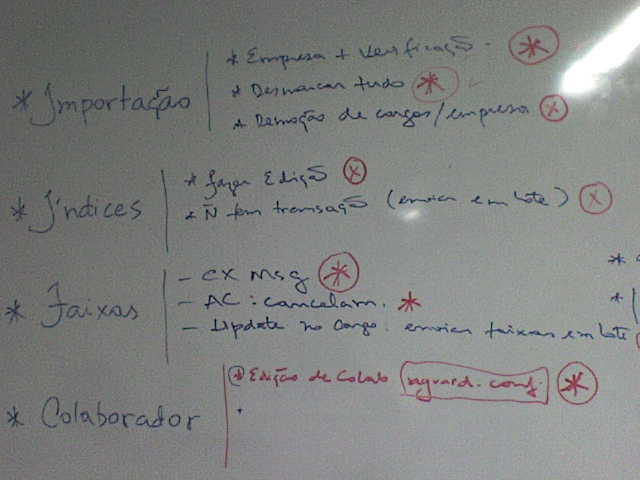 * Importação
* Empresa + Verificação.
* Desmarcar tudo
* Remoção de cargos/empresa
* Índices
* fazer Edição
* Ñ tem transação (enviar em lote)
* Faixas
- CX Msg
- AC: cancelam.
- Update no cargo: enviar faixas em lote
* Colaborador
* Edição de Colab aguard. conf.